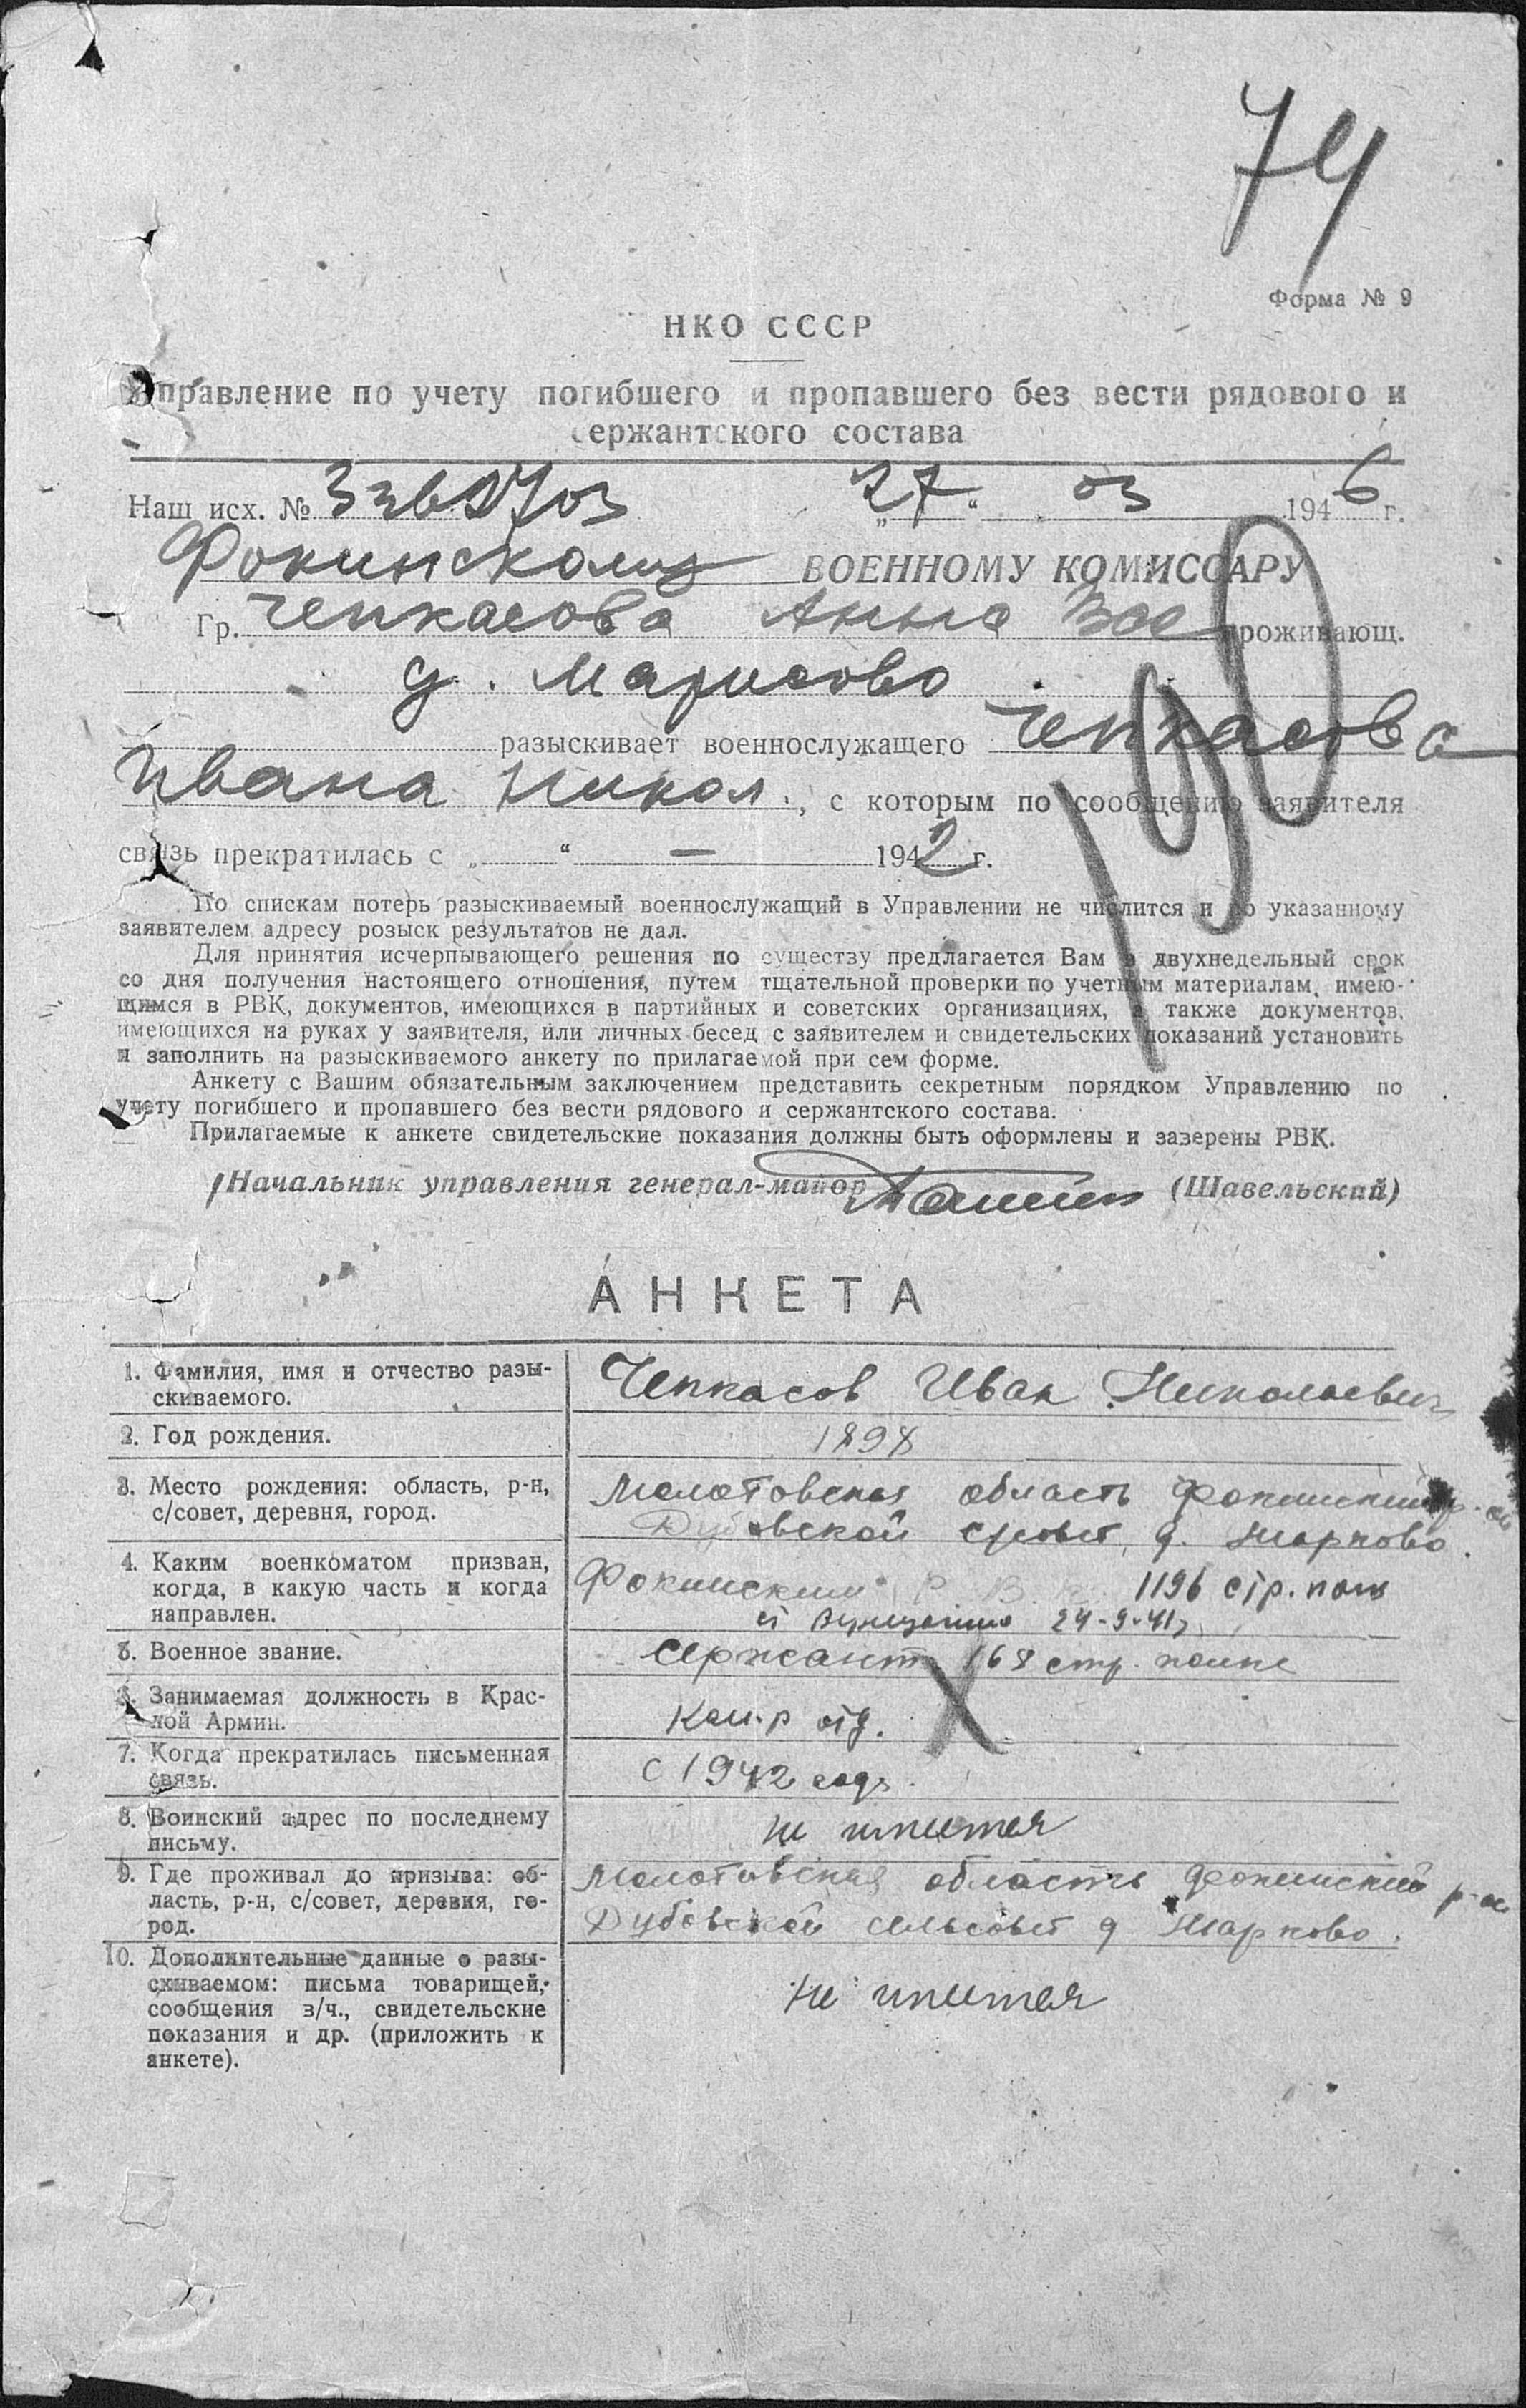 74
Форма № 9
НКО СССР
Управление по учету погибшего и пропавшего без вести рядового и
сержантского состава
Наш исх. № „27“ 03 1946 г.
Фокинскому ВОЕННОМУ КОМИССАРУ
Гр. Чепкасова Анна проживающ.
д.
разыскивает военнослужащего Чепкасова
Ивана Никол., с которым по сообщению заявителя
связь прекратилась с „ “ — 1942 г.
190
По спискам потерь разыскиваемый военнослужащий в Управлении не числится и по указанному
заявителем адресу розыск результатов не дал.
Для принятия исчерпывающего решения по существу предлагается Вам в двухнедельный срок
со дня получения настоящего отношения, путем тщательной проверки по учетным материалам, имею-
щимся в РВК, документов, имеющихся в партийных и советских организациях, а также документов,
имеющихся на руках у заявителя, или личных бесед с заявителем и свидетельских показаний установить
и заполнить на разыскиваемого анкету по прилагаемой при сем форме.
Анкету с Вашим обязательным заключением представить секретным порядком Управлению по
учету погибшего и пропавшего без вести рядового и сержантского состава.
Прилагаемые к анкете свидетельские показания должны быть оформлены и заверены РВК.
Начальник управления генерал-майор (Шавельский)
АНКЕТА
1. Фамилия, имя и отчество разы-
скиваемого.
Чепкасов Иван Николаевич
2. Год рождения.
1898
3. Место рождения: область, р-н,
с/совет, деревня, город.
Молотовская область Фокинский р-он
Дубовской с/совет, д. Шарково.
4. Каким военкоматом призван,
когда, в какую часть и когда
направлен.
Фокинским Р В К 1196 стр. полк
24-9-41г
5. Военное звание.
сержант 168 стр. полка
6. Занимаемая должность в Крас-
ной Армии.
Ком-р отд.
7. Когда прекратилась письменная
связь.
С 1942 года.
8. Воинский адрес по последнему
письму.
не имеется
9. Где проживал до призыва: об-
ласть, р-н, с/совет, деревня, го-
род.
Молотовская область Фокинский р-он
Дубовской сельсовет д Шарково.
10. Дополнительные данные о разы-
скиваемом: письма товарищей,
сообщения в/ч., свидетельские
показания и др. (приложить к
анкете).
не имеется